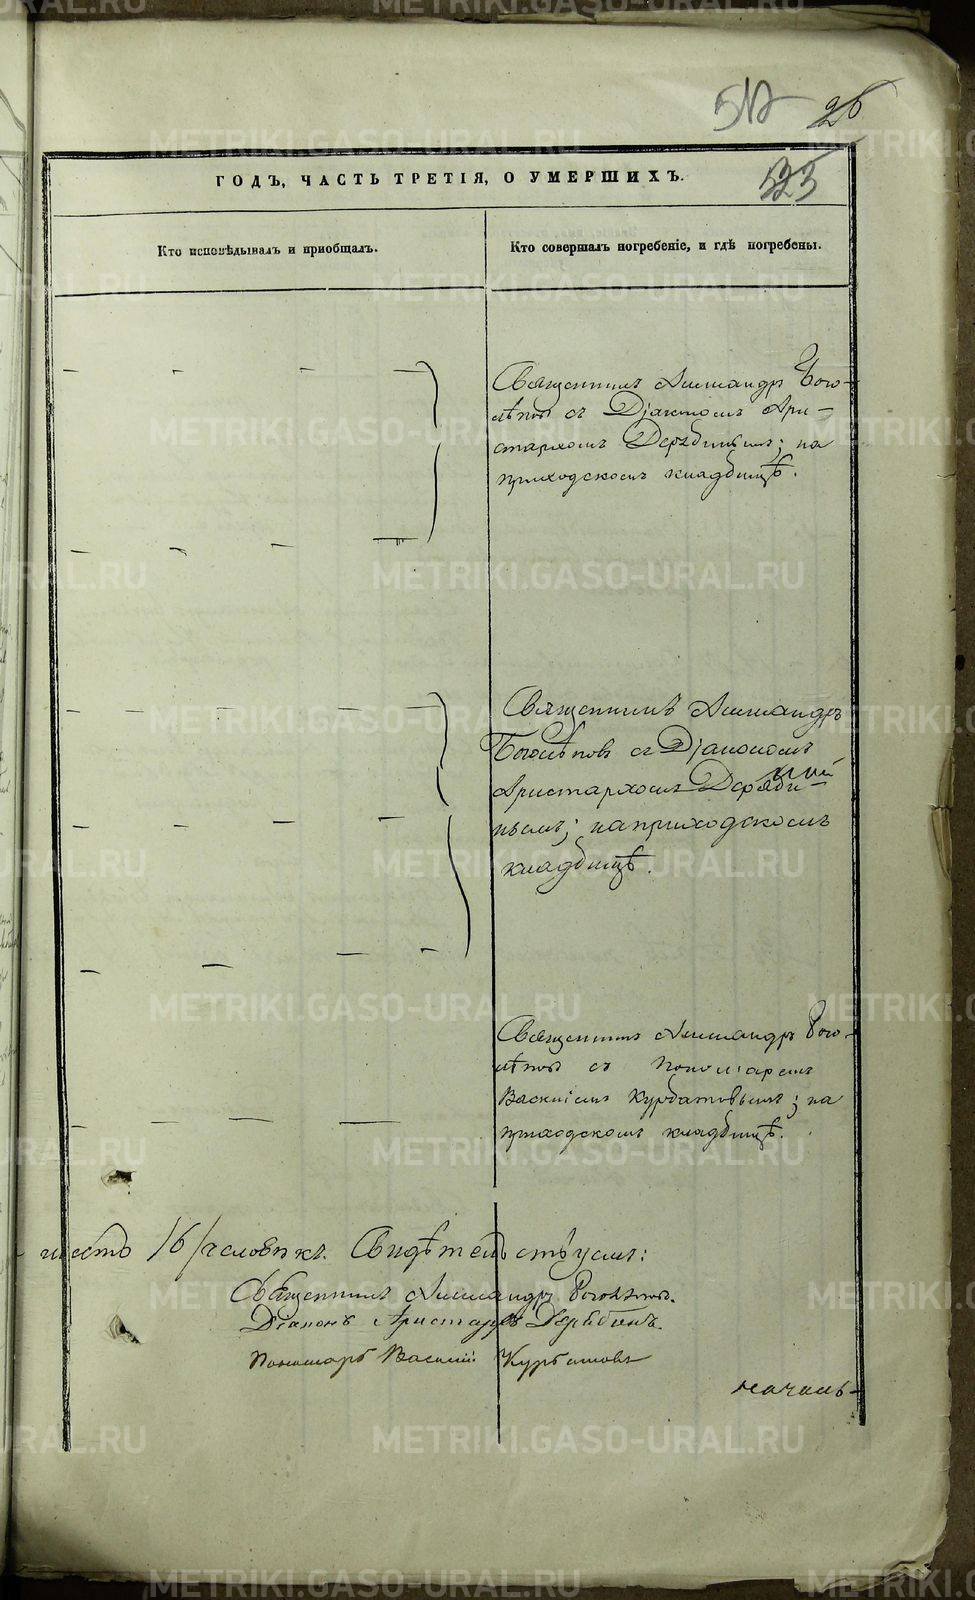 512 26
523
ГОДЪ, ЧАСТЬ ТРЕТІЯ, О УМЕРШИХЪ.
Кто исповѣдывалъ и пріобщалъ.
Кто совершалъ погребеніе, и гдѣ погребены.
Священникъ Александръ Бого-
лѣповъ съ Діакономъ Ари-
стархомъ Дерябинымъ; на
приходскомъ кладбищѣ.
Священникъ Александръ
Боголѣповъ съ Діакономъ
Аристархомъ Деряби-
нымъ; на приходскомъ
кладбищѣ.
Священникъ Александръ Бого-
лѣповъ съ Пономаремъ
Василіемъ Курбатовымъ; на
приходскомъ кладбищѣ.
шесть /6/ человѣкъ. Свидѣтельствуемъ:
Священникъ Александръ Боголѣповъ.
Діаконъ Аристархъ Дерябинъ.
Пономарь Василій Курбатовъ
началь-
METRIKI.GASO-URAL.RU